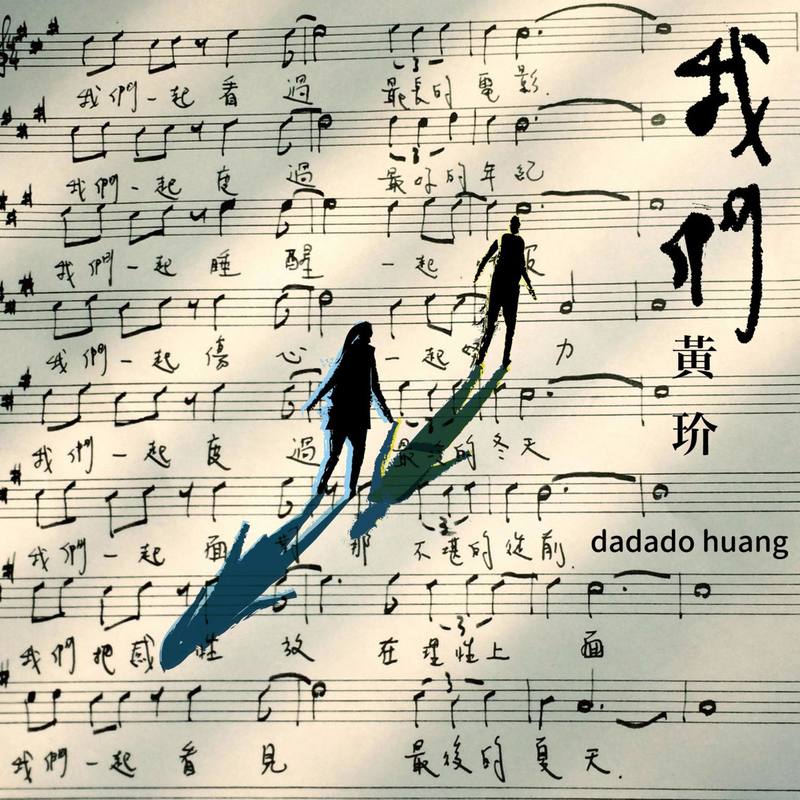 我們一起看過 最長的電影.
我們一起度過 最好的年紀
我們一起睡醒 一起
我們一起傷心 一起 力
我們一起度過 最後的冬天
我們一起面對那不堪的從前.
我們把感性放在理性上面
我們一起看見 最後的夏天.
我們
黃玠
dadado huang